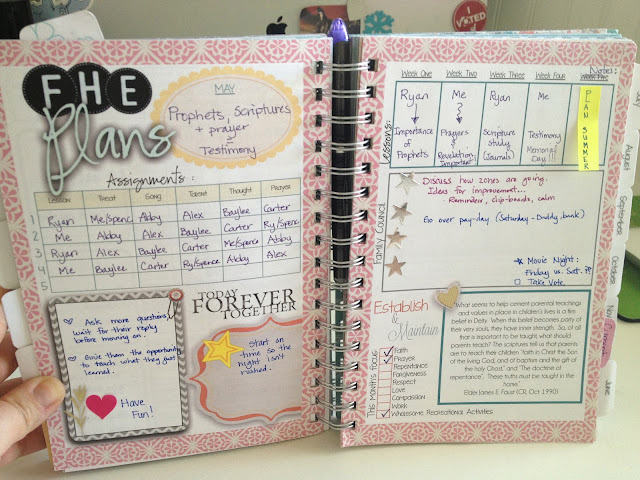 I VOTED
FHE
Plans
MAY
Prophets, Scriptures
+ prayer
=
Testimony
Assignments:
Lesson Treat Song Talent Thought Prayer
1 Ryan Me/Spenc Abby Alex Baylee Carter
2 Me Abby Alex Baylee Carter Ry/Spence
3 Ryan Alex Baylee Carter Me/Spence Abby
4 Me Baylee Carter Ry/Spence Abby Alex
5
Ask more questions,
wait for their reply
before moving on.
Give them the opportunity
to teach what they just
learned.
Have
Fun!
TODAY
FOREVER
TOGETHER
Start on
time so the
night isn't
rushed.
Notes:
Week One Week Two Week Three Week Four
Lessons:
Ryan Me Ryan Me
Importance
of
Prophets
Prayers
&
Revelation
Important
Scripture
Study
(Journals)
Testimony
Memorial
Day !!!
PLAN SUMMER
Family Council
Discuss how zones are going.
Ideas for improvement...
Reminders, clip-boards, calm
Go over pay-day (Saturday - Daddy bank)
Movie Night:
Friday vs. Sat. ??
Take Vote.
Establish
&
Maintain
This Month's Focus
Faith
Prayer
Repentance
Forgiveness
Respect
Love
Compassion
Work
Wholesome Recreational Activities
What seems to help cement parental teachings
and values in place in children's lives is a firm
belief in Deity. When this belief becomes part of
their very souls, they have inner strength. So, of all
that is important to be taught, what should
parents teach? The scriptures tell us that parents
are to teach their children "faith in Christ the Son of
the living God, and of baptism and the gift of
the holy Ghost," and "The doctrine of
repentance". These truths must be taught in the
home."
Elder James E. Faust (CR, Oct 1990)
August
September
October
June